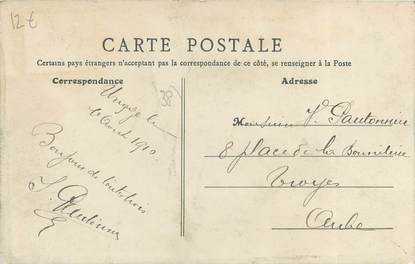 12€
CARTE POSTALE
Certains pays étrangers n'acceptant pas la correspondance de ce côté, se renseigner à la Poste
Correspondance
Adresse
le
Août 1910
Bonjour de
Monsieur V. Pautonnier
8 place de la Bonneterie
Troyes
Aube